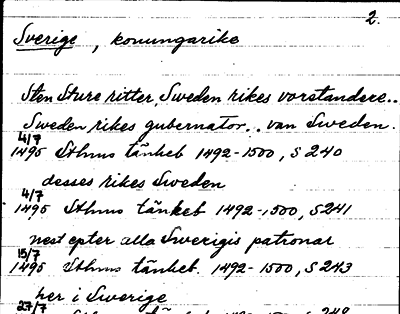 2.
Sverige, konungarike
Sten Sture ritter, Sweden rikes vorstandere..
Sweden rikes gubernator.. van Sweden.
4/7
1495 Sthms tänkeb 1492-1500, S 240
desses rikes Sweden
4/7
1495 Sthms tänkeb 1492-1500, S 241
nest epter alla Swerigis patronar
15/7
1495 Sthms tänkeb. 1492-1500, S 243
her i Swerige
27/7